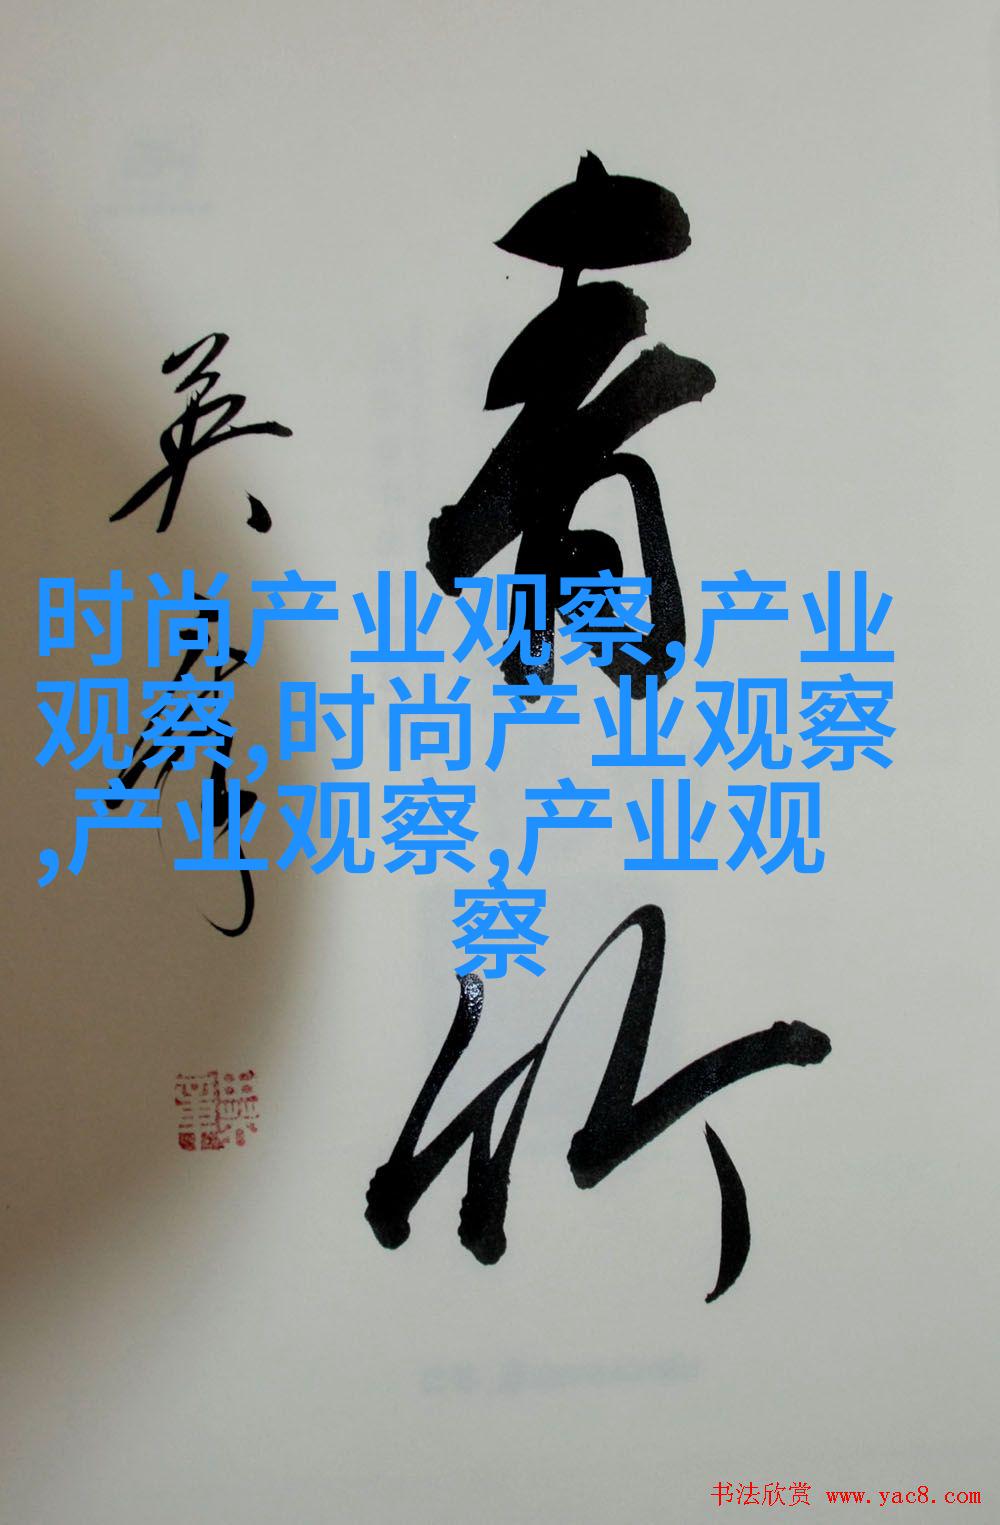 青竹
英年
时尚产业观察,产业
观察,时尚产业观察
,产业观察,产业观
察
书法欣赏 www.yac8.com